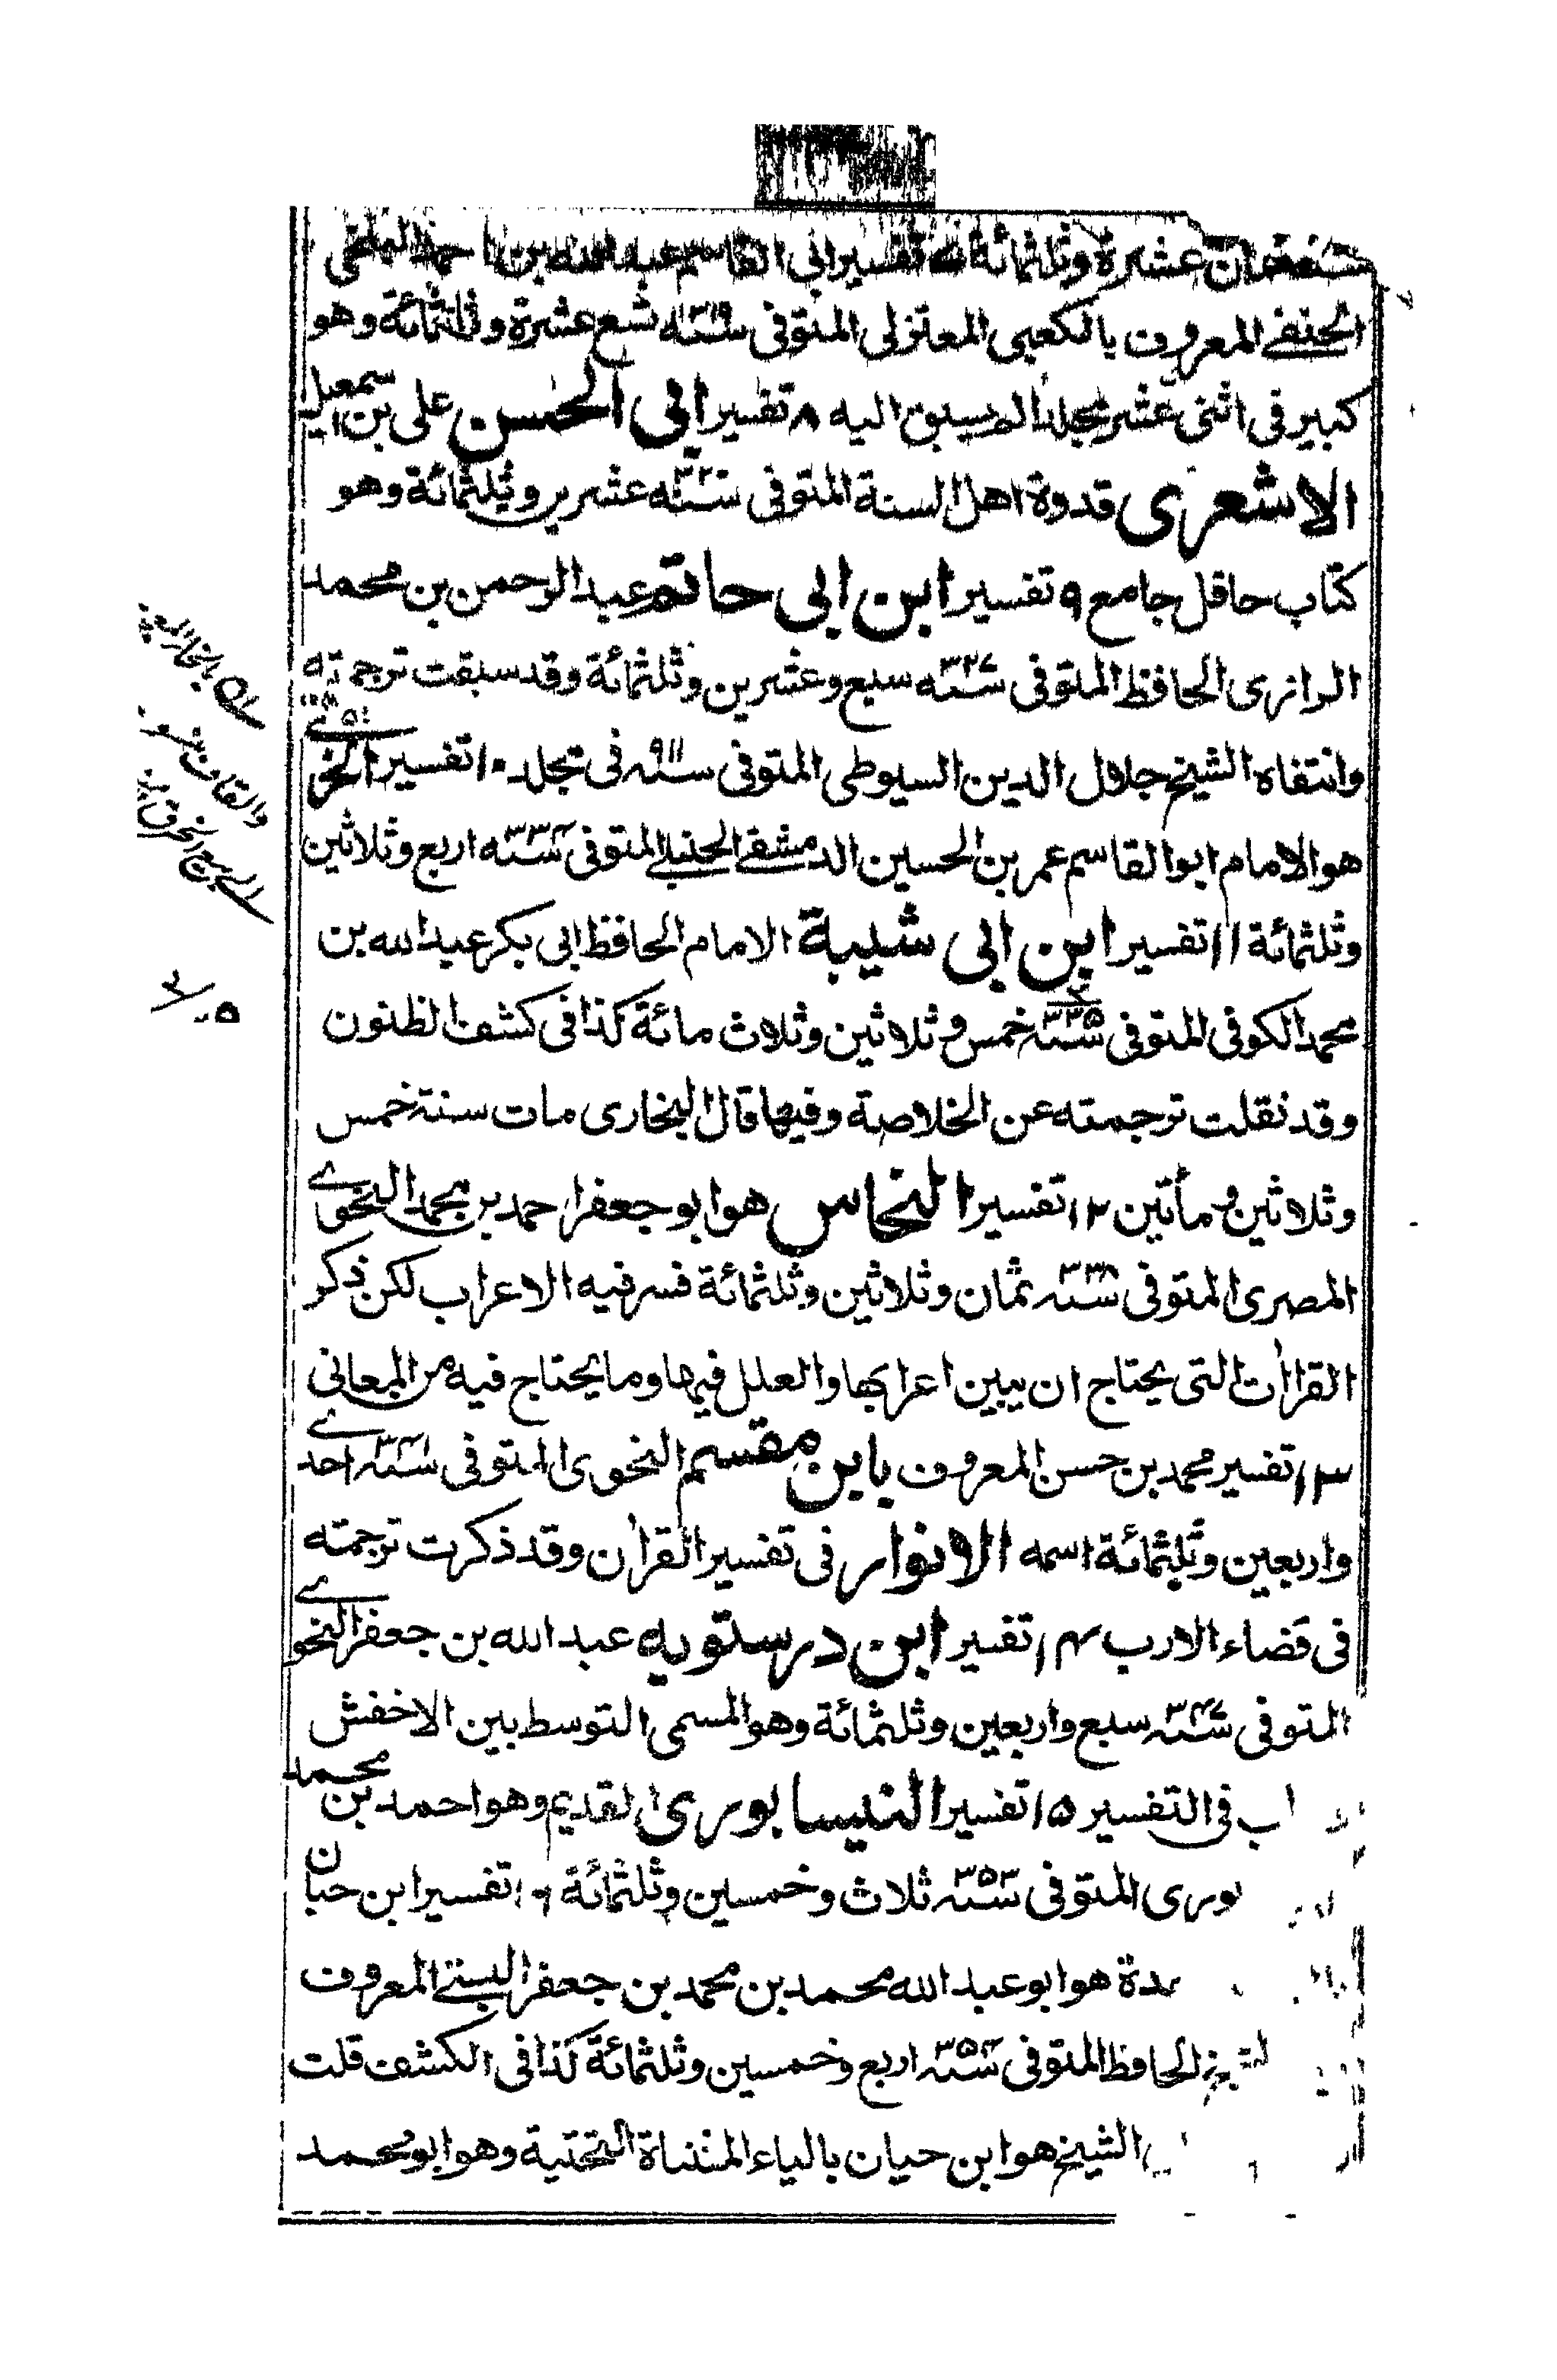 عشرة وثلثمائة تفسير ابى القاسم عبد الله بن احمد البلخى
الحنفے المعروف بالكعبى المعتزلى المتوفى سنة ٣١٩ تسع عشرة وثلثمائة وهو
كبير فى اثنى عشر مجلدا لم يسبق اليه ٨ تفسير ابى الحسن على بن اسمعيل
الاشعرى قدوة اهل السنة المتوفى سنة عشرين وثلثمائة وهو
كتاب حافل جامع ٩ تفسير ابن ابى حاتم عبد الرحمن بن محمد
الرازى الحافظ المتوفى سنة ٣٢٧ سبع وعشرين وثلثمائة وقد سبقت ترجمته
وانتقاه الشيخ جلال الدين السيوطى المتوفى سنة ٩١١ فى مجلد ١٠ تفسير الخرقے
هو الامام ابو القاسم عمر بن الحسين الدمشقے الحنبلے المتوفى سنة ٣٣٤ اربع وثلاثين
وثلثمائة ١١ تفسير ابن ابى شيبة الامام الحافظ ابى بكر عبد الله بن
محمد الكوفى المتوفى سنة ٣٣٥ خمس وثلاثين وثلاث مائة كذا فى كشف الظنون
وقد نقلت ترجمته عن الخلاصة وفيها قال البخارى مات سنة خمس
وثلاثين ومأتين ١٢ تفسير النحاس هو ابو جعفر احمد بن محمد النحوے
المصرى المتوفى سنة ٣٣٨ ثمان وثلاثين وثلثمائة فسر فيه الاعراب لكن ذكر
القراٰت التى يحتاج ان يبين اعرابها والعلل فيها وما يحتاج فيه من المعانى
١٣ تفسير محمد بن حسن المعروف بابن مقسم النحوى المتوفى سنة ٣٤١ احدے
واربعين وثلثمائة اسمه الانوار فى تفسير القراٰن وقد ذكرت ترجمته
فى قضاء الارب ١٤ تفسير ابن درستويه عبد الله بن جعفر النحوے
المتوفى سنة ٣٤٧ سبع واربعين وثلثمائة وهو المسمى التوسط بين الاخفش
فى التفسير ١٥ تفسير النيسابورى القديم وهو احمد بن محمد
المتوفى سنة ٣٥٣ ثلاث وخمسين وثلثمائة ١٦ تفسير ابن حبان
هو ابو عبد الله محمد بن محمد بن جعفر البستے المعروف
الحافظ المتوفى سنة ٣٥٤ اربع وخمسين وثلثمائة كذا فى الكشف قلت
الشيخ هو ابن حيان بالياء المثناة التحتية وهو ابو محمد